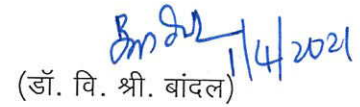 1/4/2021
(डॉ. वि. श्री. बांदल)